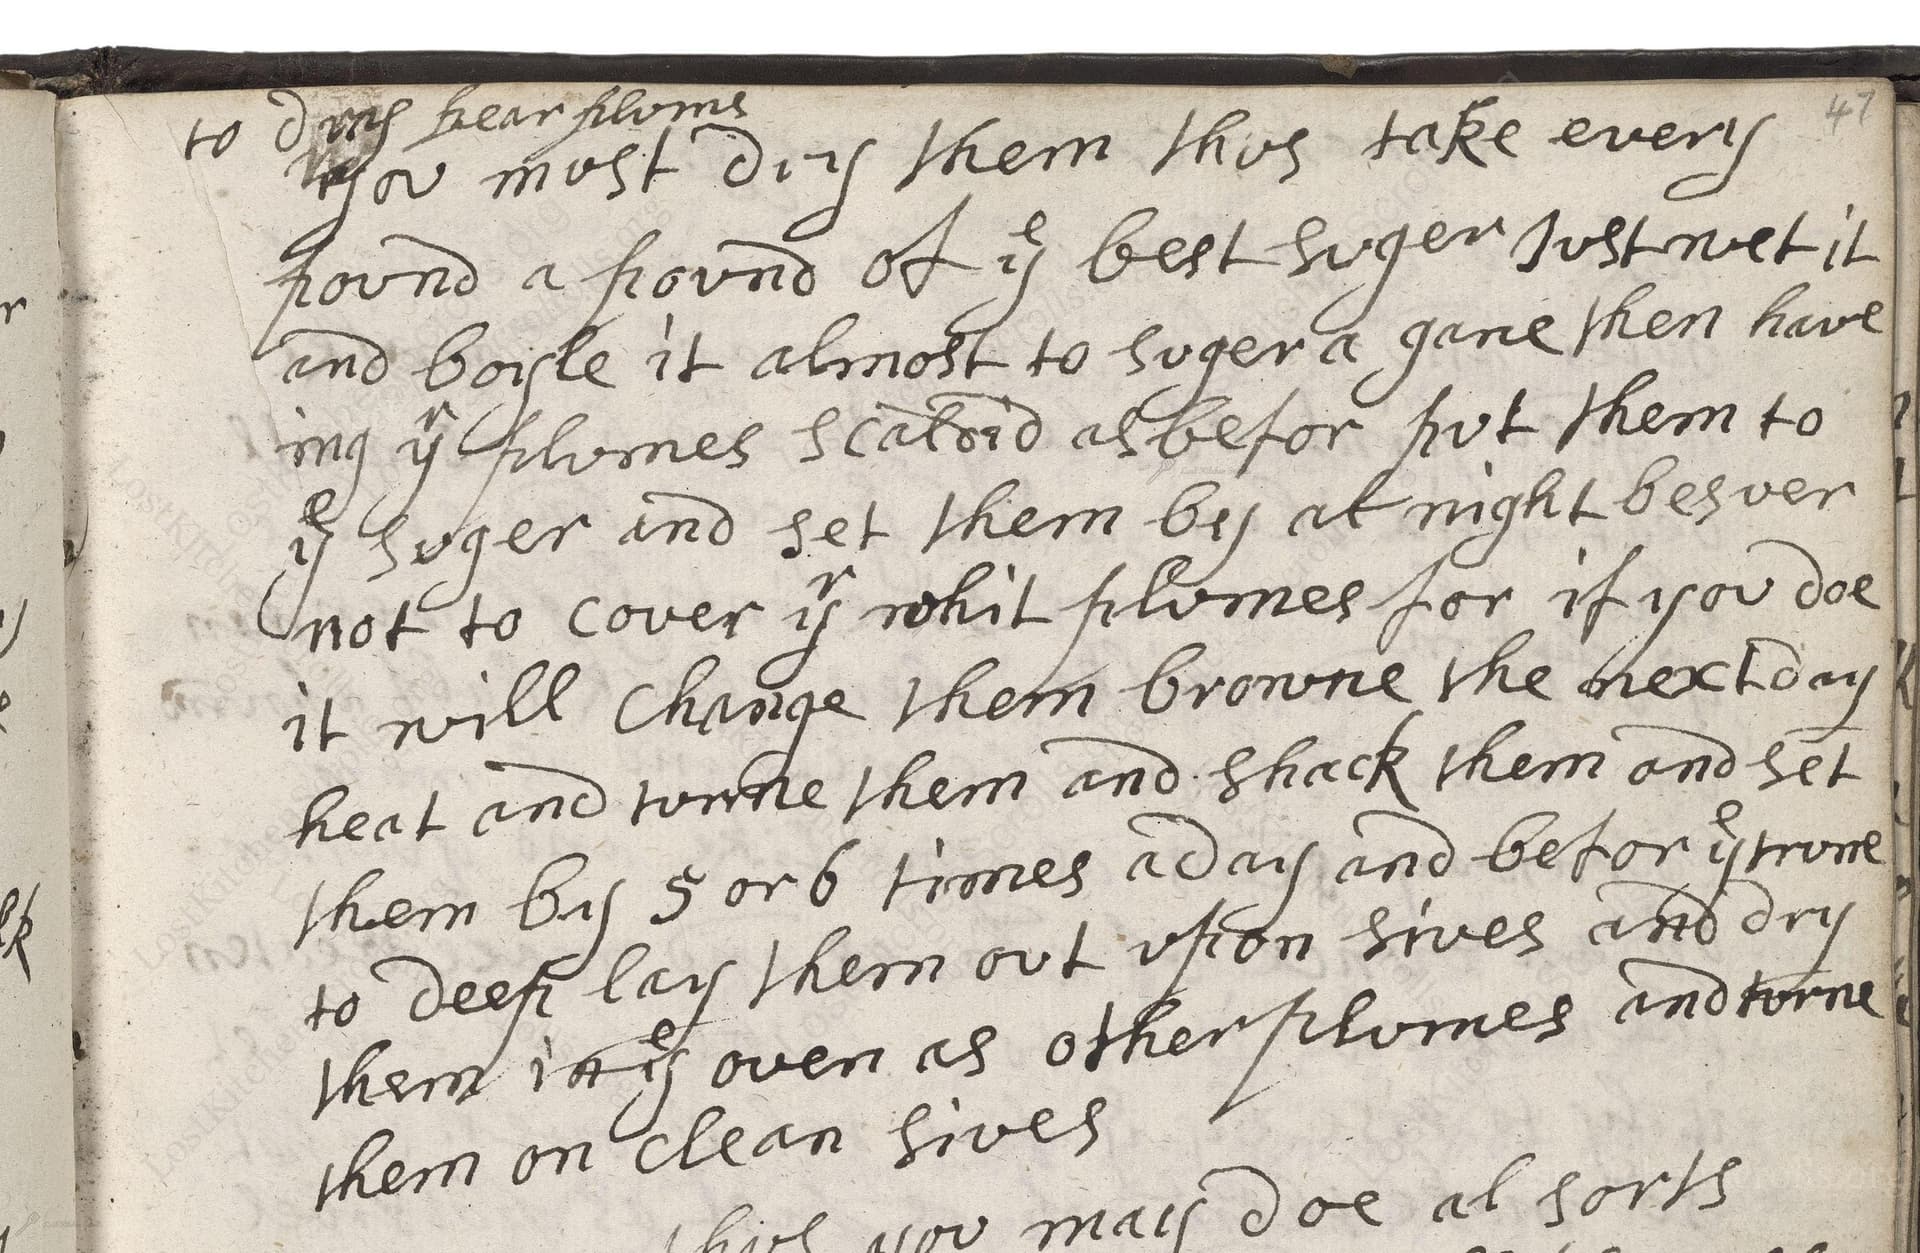 47
to drey pear plums
you must dry them thus take every
pound a pound of yͤ best suger Just wet it
and boyle it almost to suger a gane then have
ing yʳ plumes scaldid as befor put them to
yͤ suger and set them by at night besuer
not to cover yʳ whit plumes for if you doe
it will Change them browne the next day
heat and turne them and shack them and set
them by 5 or 6 times a day and befor yͤ
to deep lay them out upon sives and dry
them in yͤ oven as other plumes and turne
them on clean sives
thus you may doe al sorts